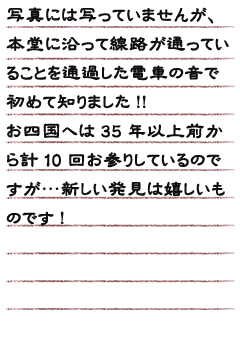 写真には写っていませんが、
本堂に沿って線路が通ってい
ることを通過した電車の音で
初めて知りました!!
お四国へは 35 年以上前か
ら計 10 回お参りしているので
すが…新しい発見は嬉しいも
のです!